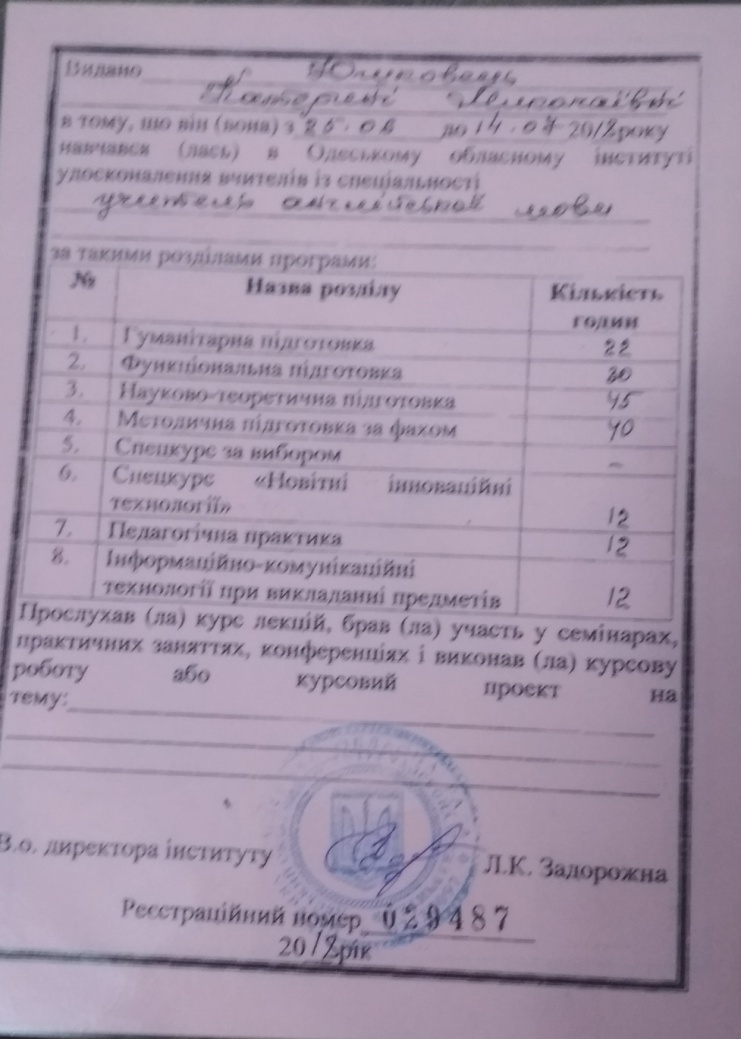 Видано
Катерині Миколаївні
в тому, що він (вона) з 25.06 до 14.07 2012 року
навчався (лась) в Одеському обласному інституті
удосконалення вчителів із спеціальності
учитель англійської мови
за такими розділами програми:
№ Назва розділу Кількість
годин
1. Гуманітарна підготовка 22
2. Функціональна підготовка 30
3. Науково-теоретична підготовка 45
4. Методична підготовка за фахом 40
5. Спецкурс за вибором –
6. Спецкурс «Новітні інноваційні
технології» 12
7. Педагогічна практика 12
8. Інформаційно-комунікаційні
технології при викладанні предметів 12
Прослухав (ла) курс лекцій, брав (ла) участь у семінарах,
практичних заняттях, конференціях і виконав (ла) курсову
роботу або курсовий проєкт на
тему:
В.о. директора інституту Л.К. Задорожна
Реєстраційний номер 029487
2012 рік